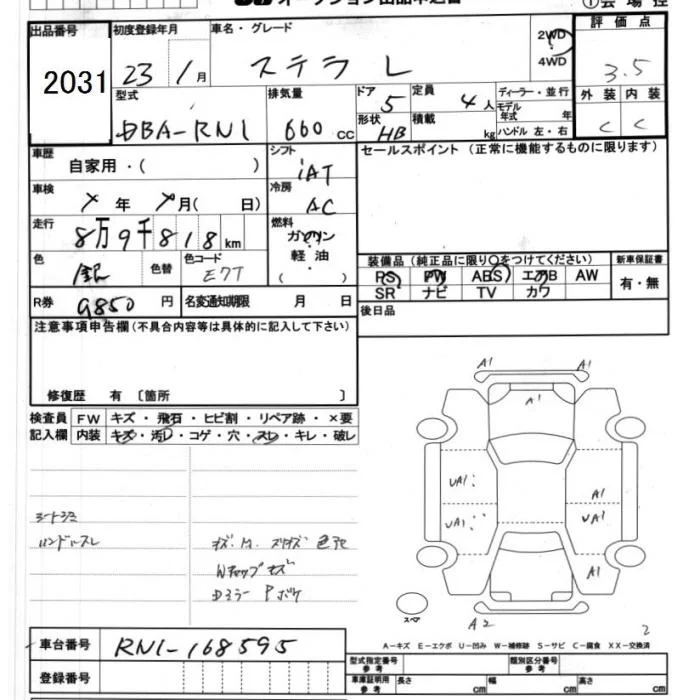 ①会場控
出品番号 初度登録年月 車名・グレード 2WD 4WD 評価点
2031 23年 1月 ステラ L 3.5
型式 排気量 ドア 定員 ディーラー・並行 外装 内装
DBA-RN1 660cc 5 4人 モデル年式 年 C C
形状 HB 積載 kg ハンドル 左・右
車歴 自家用・( ) シフト iAT セールスポイント (正常に機能するものに限ります)
車検 年 月( 日) 冷房 AC
走行 8万9千818km 燃料 ガソリン
色 銀 色替 色コード E7T 軽油 ・( )
装備品(純正品に限り○をつけてください) 新車保証書
PS PW ABS エアB AW 有・無
SR ナビ TV カワ
R券 9850円 名変通知期限 月 日 後日品
注意事項申告欄(不具合内容等は具体的に記入して下さい)
修復歴 有 〔箇所 〕
検査員 FW キズ・飛石・ヒビ割・リペア跡・×要
記入欄 内装 キズ・汚レ・コゲ・穴・スレ・キレ・破レ
A1 A1
A1
UA1 A1
UA1 UA1
A1
A2
シートシミ
ハンドルスレ
スペア
2
A-キズ E-エクボ U-凹み W-補修跡 S-サビ C-腐食 XX-交換済
車台番号 RN1-168595
型式指定番号 参考 類別区分番号 参考
登録番号 車庫証明用 参考 長さ cm 幅 cm 高さ cm